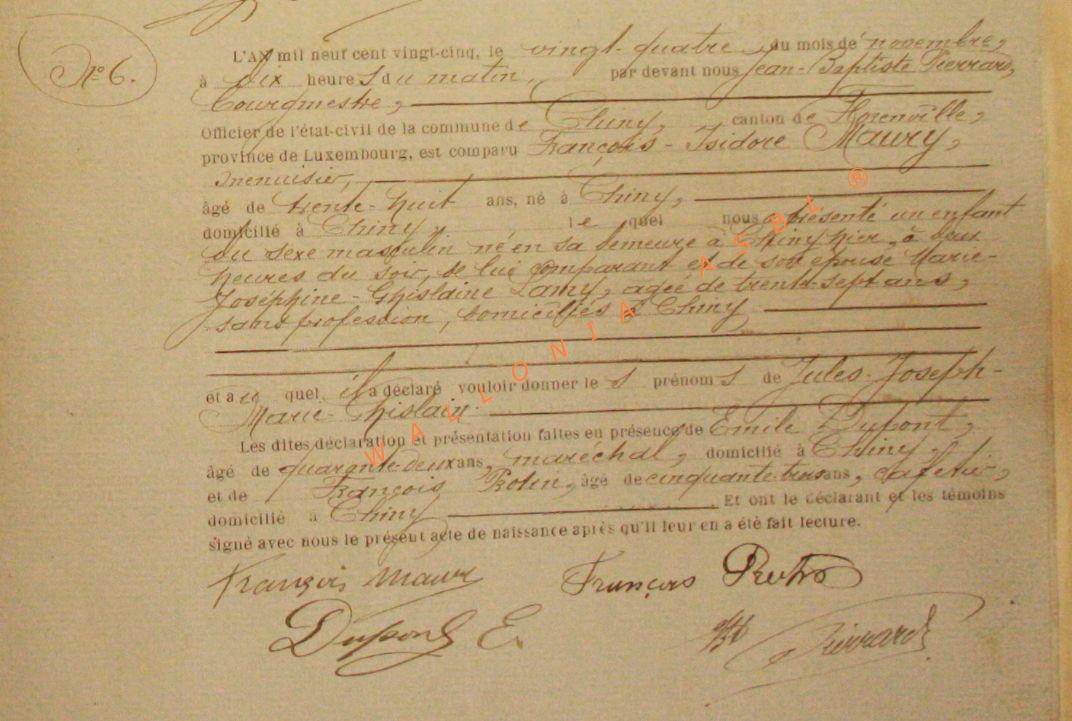 N° 6.
L'AN mil neuf cent vingt-cinq, le vingt-quatre du mois de novembre,
à dix heures du matin, par devant nous Jean-Baptiste Pierrard,
Bourgmestre,
Officier de l'état-civil de la commune de Chiny, canton de Florenville,
province de Luxembourg, est comparu François-Isidore Maury,
menuisier,
âgé de trente-huit ans, né à Chiny,
domicilié à Chiny, lequel nous a présenté un enfant
du sexe masculin né en sa demeure à Chiny hier, à deux
heures du soir, de lui comparant et de son épouse Marie-
Joséphine-Ghislaine Lamy, âgée de trente-sept ans,
sans profession, domiciliés à Chiny
et auquel il a déclaré vouloir donner les prénoms de Jules-Joseph-
Marie-Ghislain.
Les dites déclaration et présentation faites en présence de Emile Dupont,
âgé de quarante-deux ans, maréchal, domicilié à Chiny,
et de François, âgé de cinquante-trois ans, cafetier,
domicilié à Chiny. Et ont le déclarant et les témoins
signé avec nous le présent acte de naissance après qu'il leur en a été fait lecture.
François Maury François
Dupont E. Pierrard
WALLONIA ASBL ®